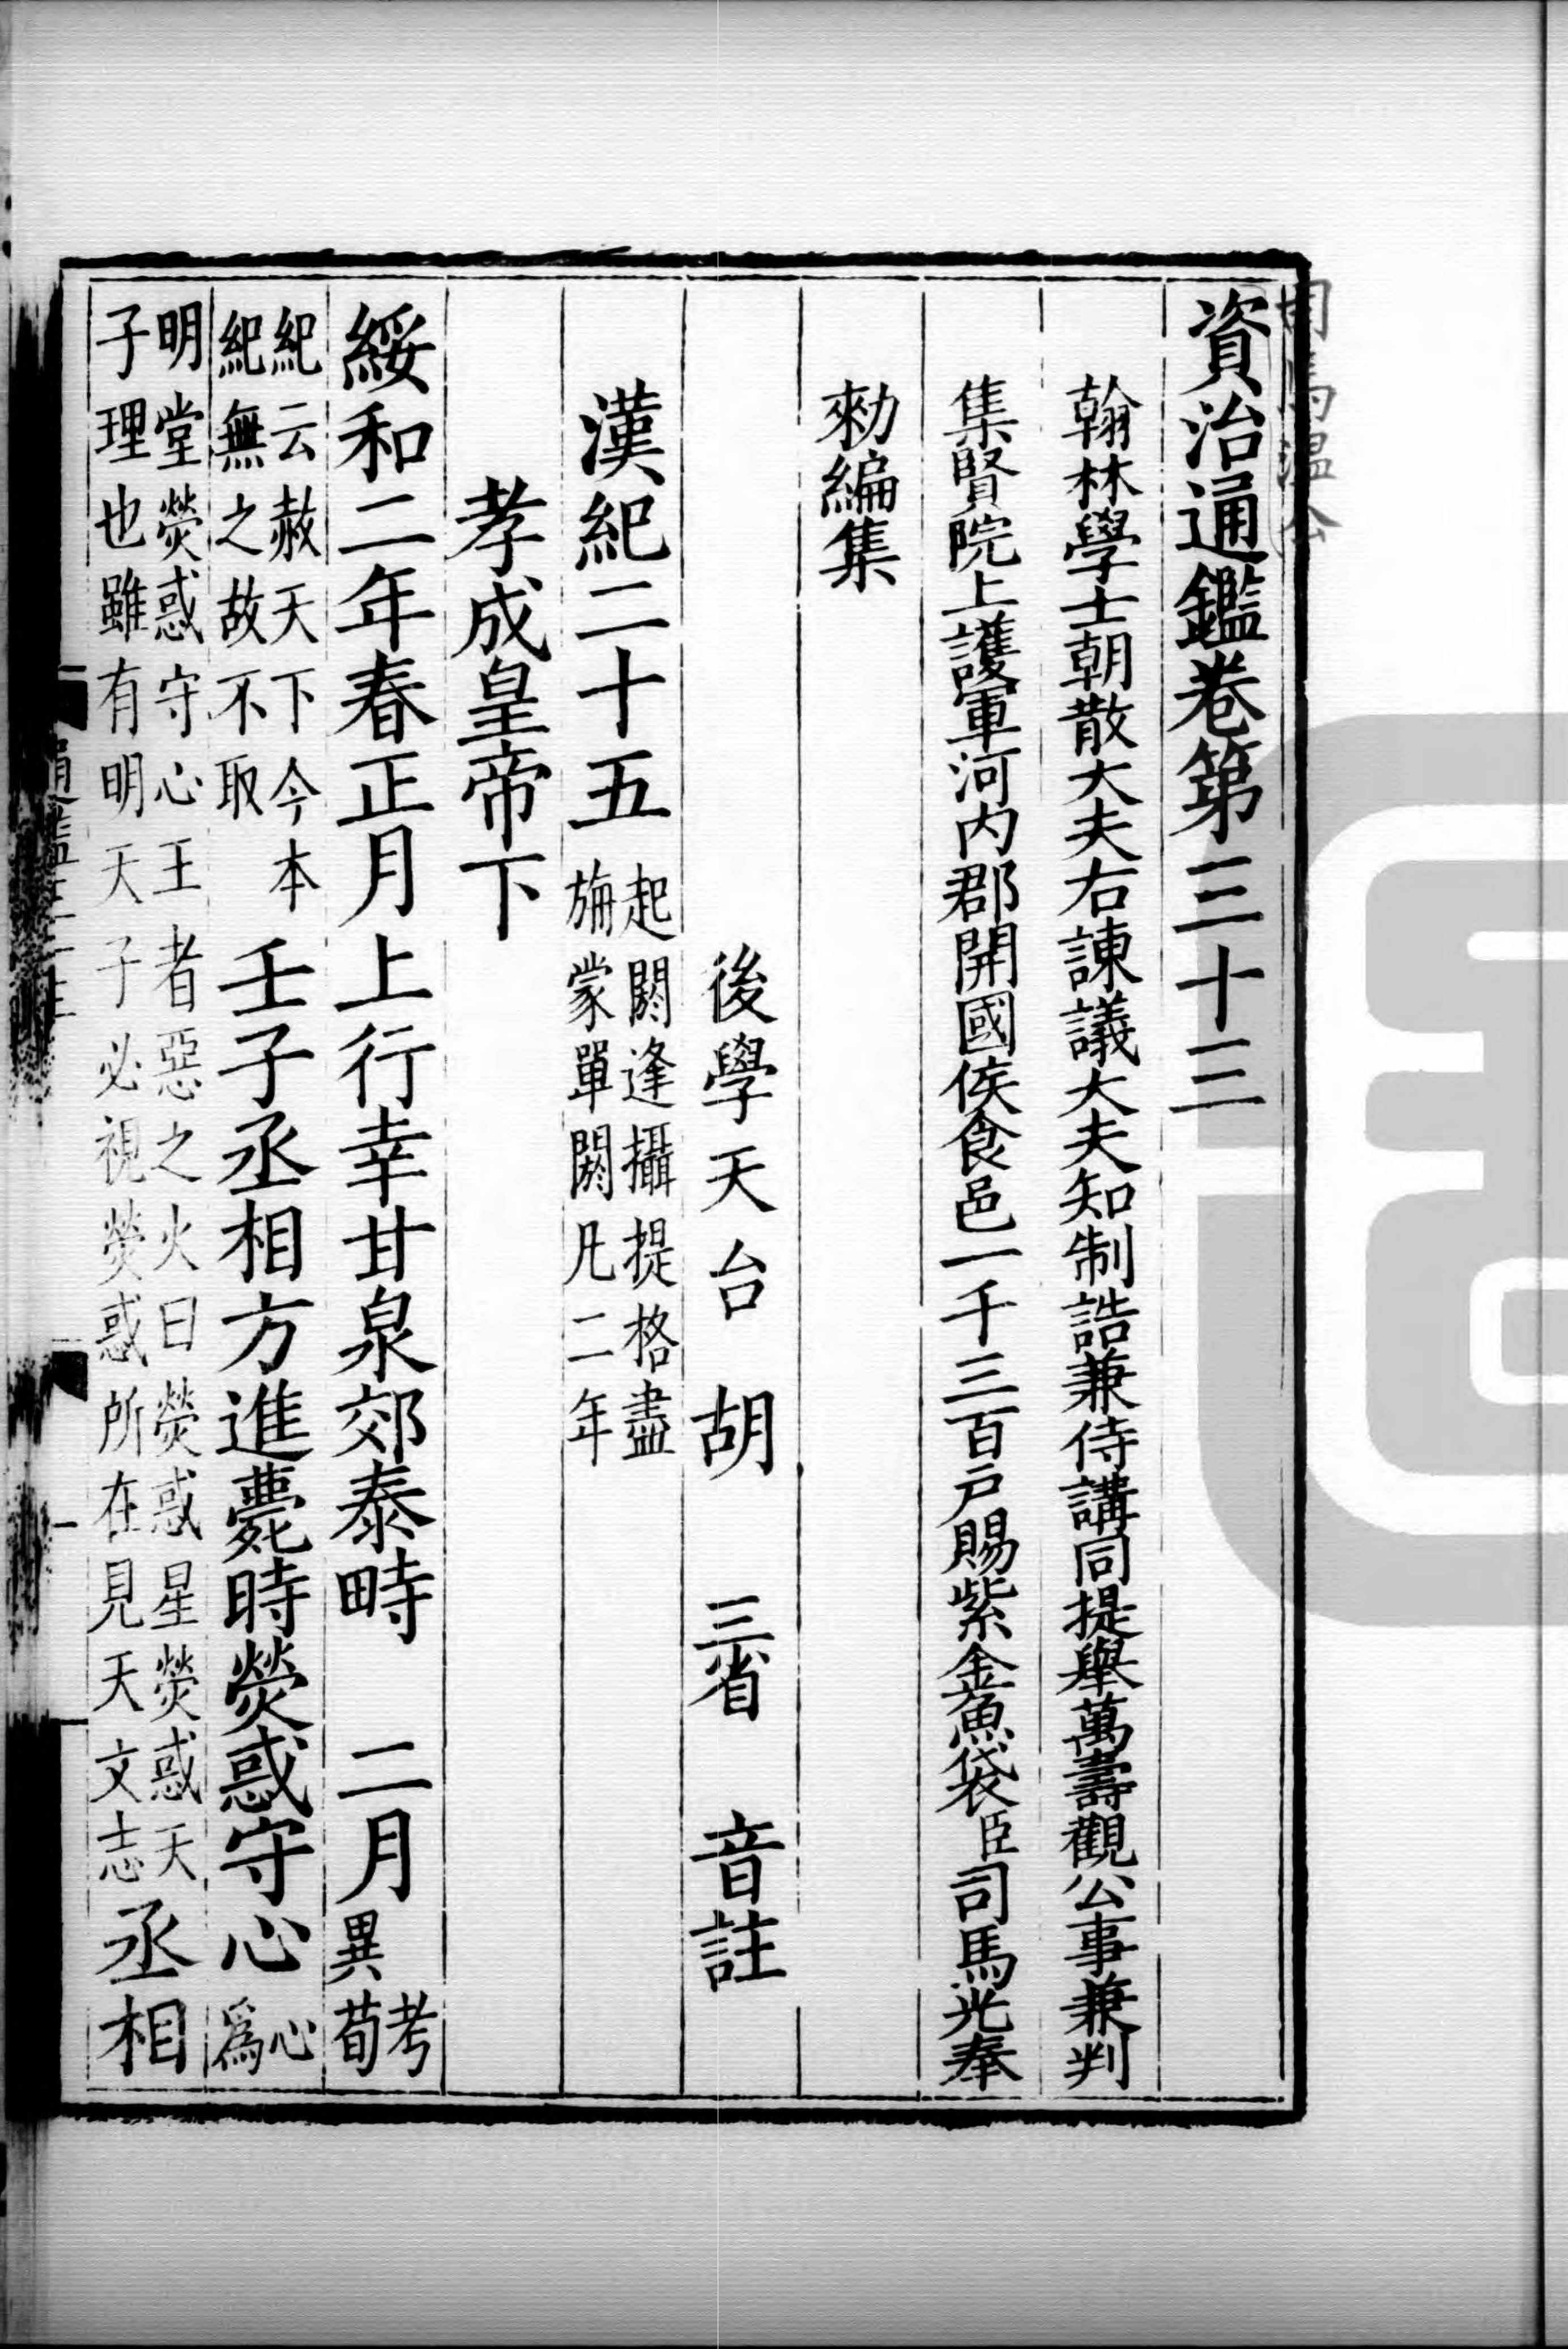 資治通鑑卷第三十三
翰林學士朝散大夫右諫議大夫知制誥兼侍講同提舉萬壽觀公事兼判
集賢院上護軍河内郡開國侯食邑一千三百戶賜紫金魚袋臣司馬光奉
勑編集
後學天台胡三省音註
漢紀二十五起閼逢攝提格盡旃蒙單閼凡二年
孝成皇帝下
綏和二年春正月上行幸甘泉郊泰畤二月考異荀
紀云赦天下今本紀無之故不取壬子丞相方進薨時熒惑守心心爲
明堂熒惑守心王者惡之火曰熒惑星熒惑天子理也雖有明天子必視熒惑所在見天文志丞相